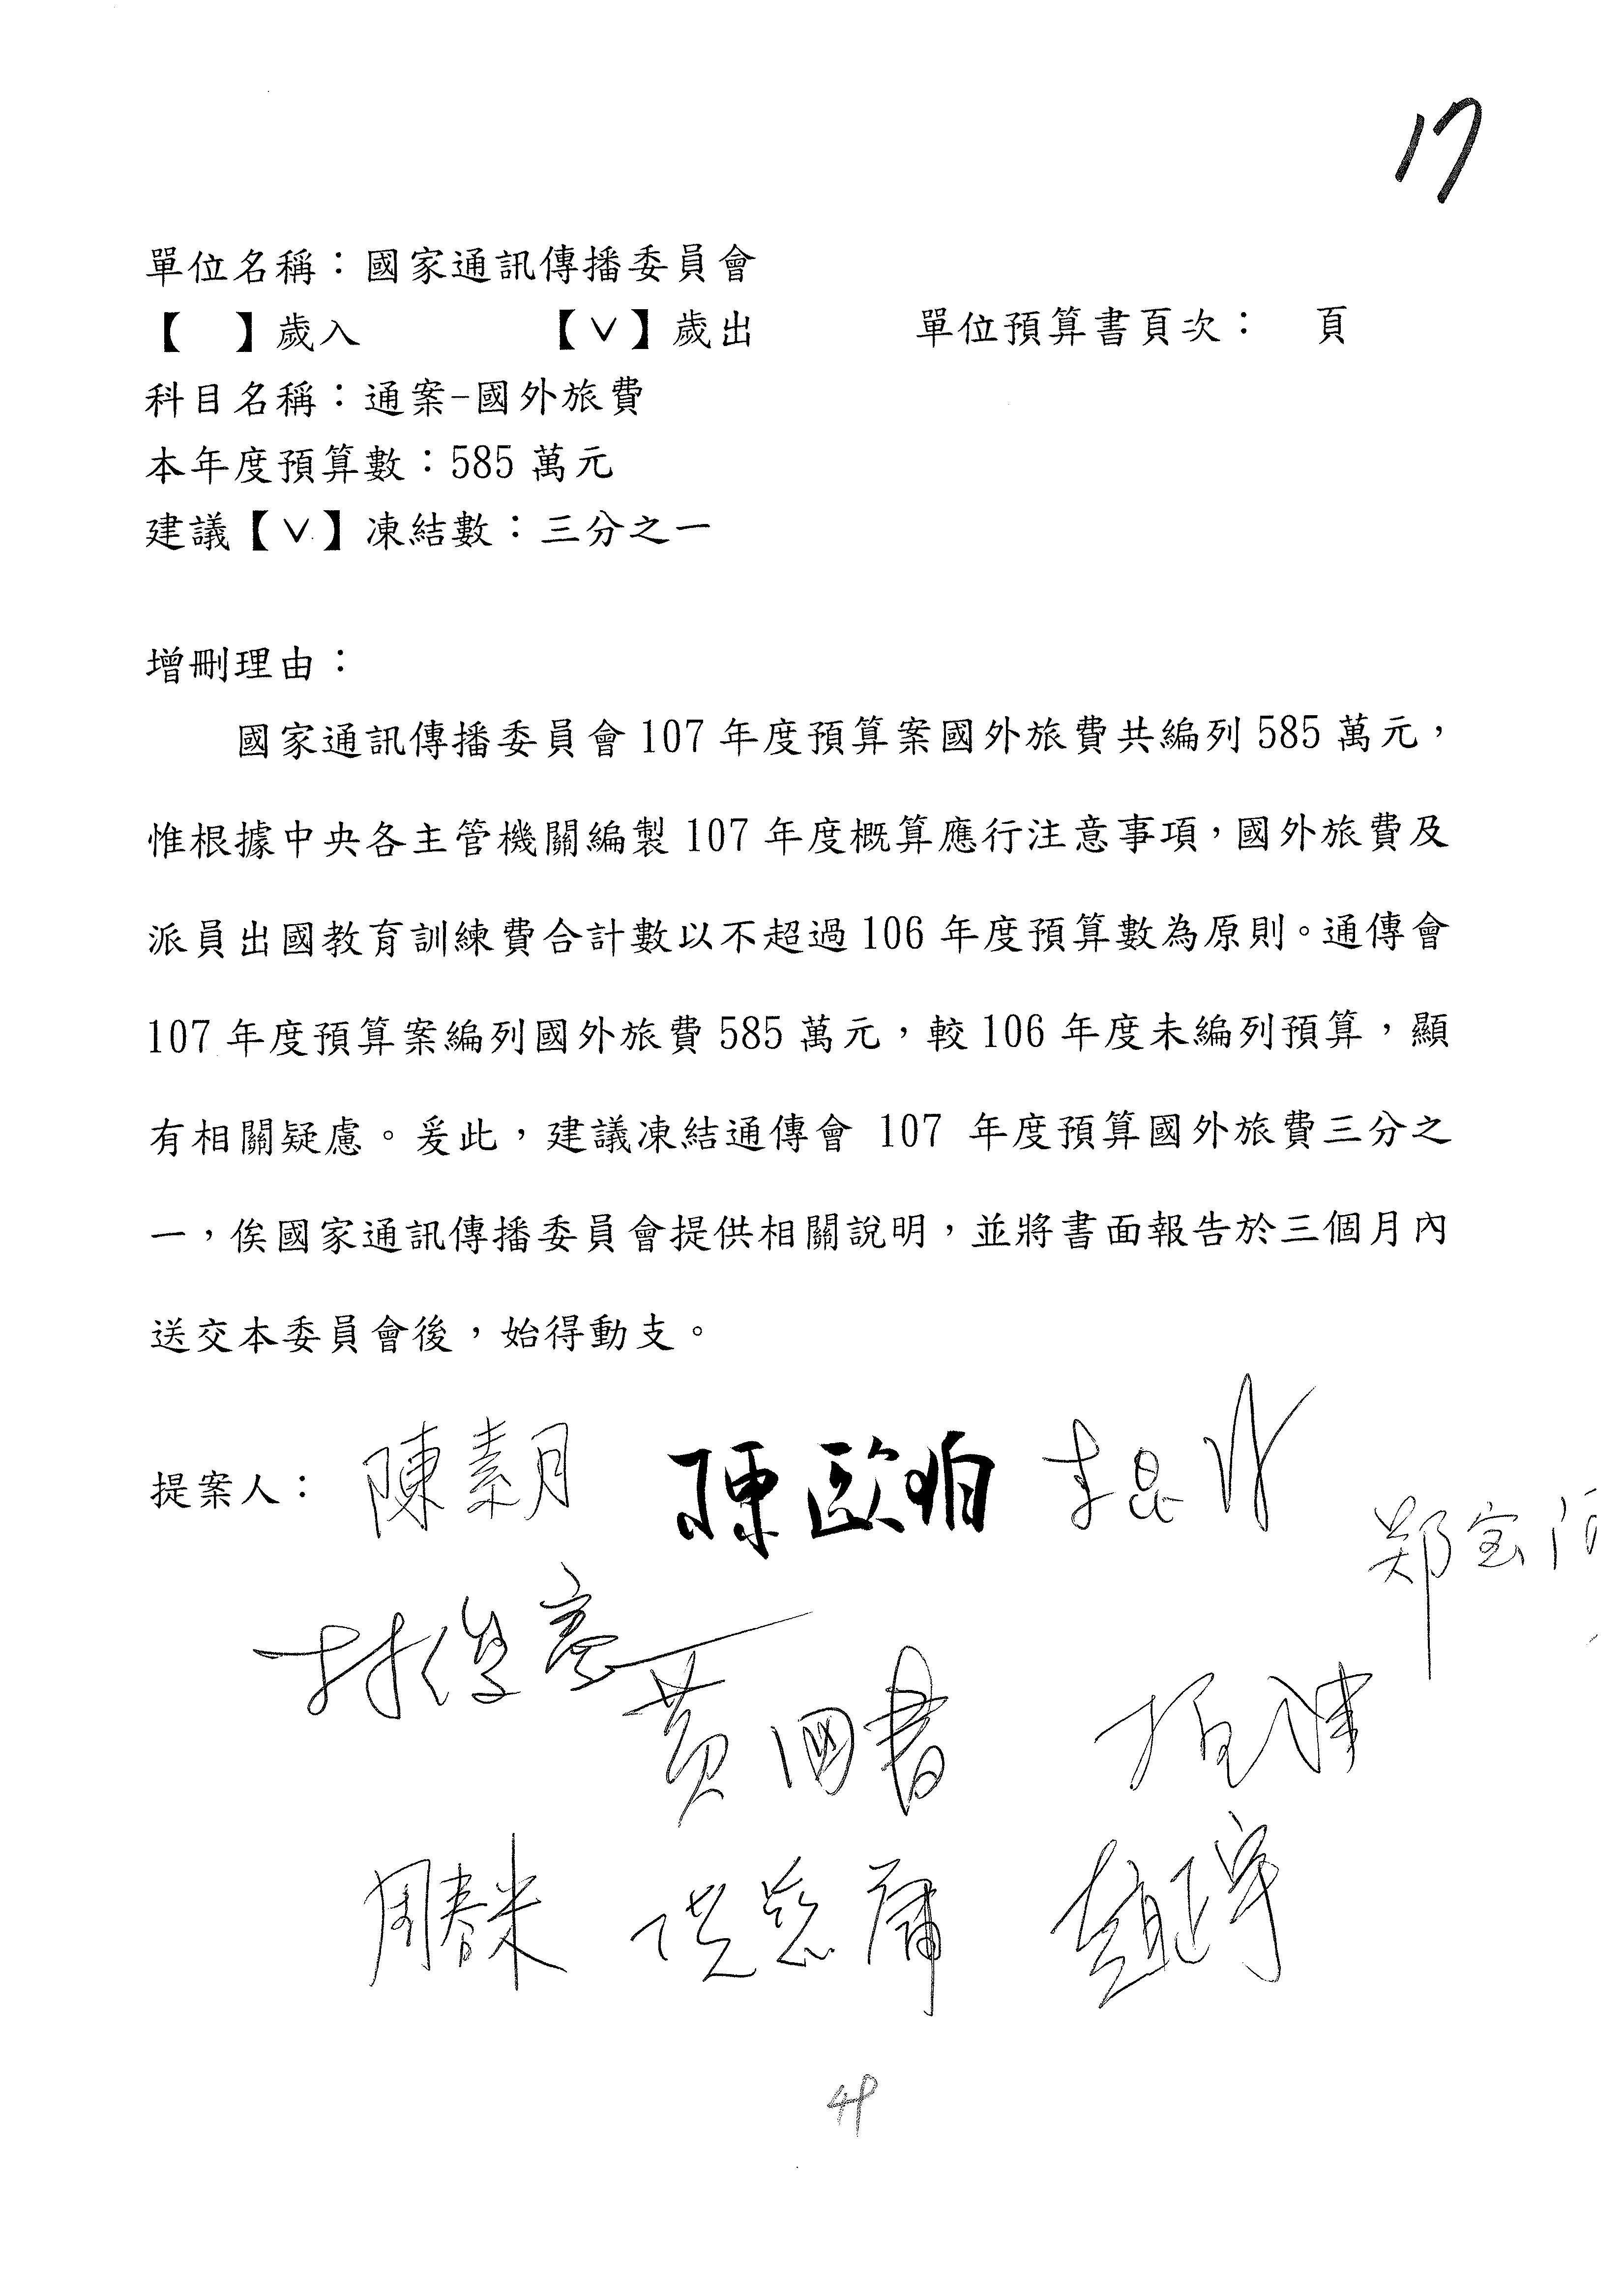 17
單位名稱：國家通訊傳播委員會
【　】歲入　【∨】歲出　單位預算書頁次：　頁
科目名稱：通案-國外旅費
本年度預算數：585 萬元
建議【∨】凍結數：三分之一
增刪理由：
國家通訊傳播委員會 107 年度預算案國外旅費共編列 585 萬元，
惟根據中央各主管機關編製 107 年度概算應行注意事項，國外旅費及
派員出國教育訓練費合計數以不超過 106 年度預算數為原則。通傳會
107 年度預算案編列國外旅費 585 萬元，較 106 年度未編列預算，顯
有相關疑慮。爰此，建議凍結通傳會 107 年度預算國外旅費三分之
一，俟國家通訊傳播委員會提供相關說明，並將書面報告於三個月內
送交本委員會後，始得動支。
提案人：陳素月 陳歐珀 李昆澤
鄭宝清
林俊憲
黃國書
周春米 洪慈庸 趙正宇